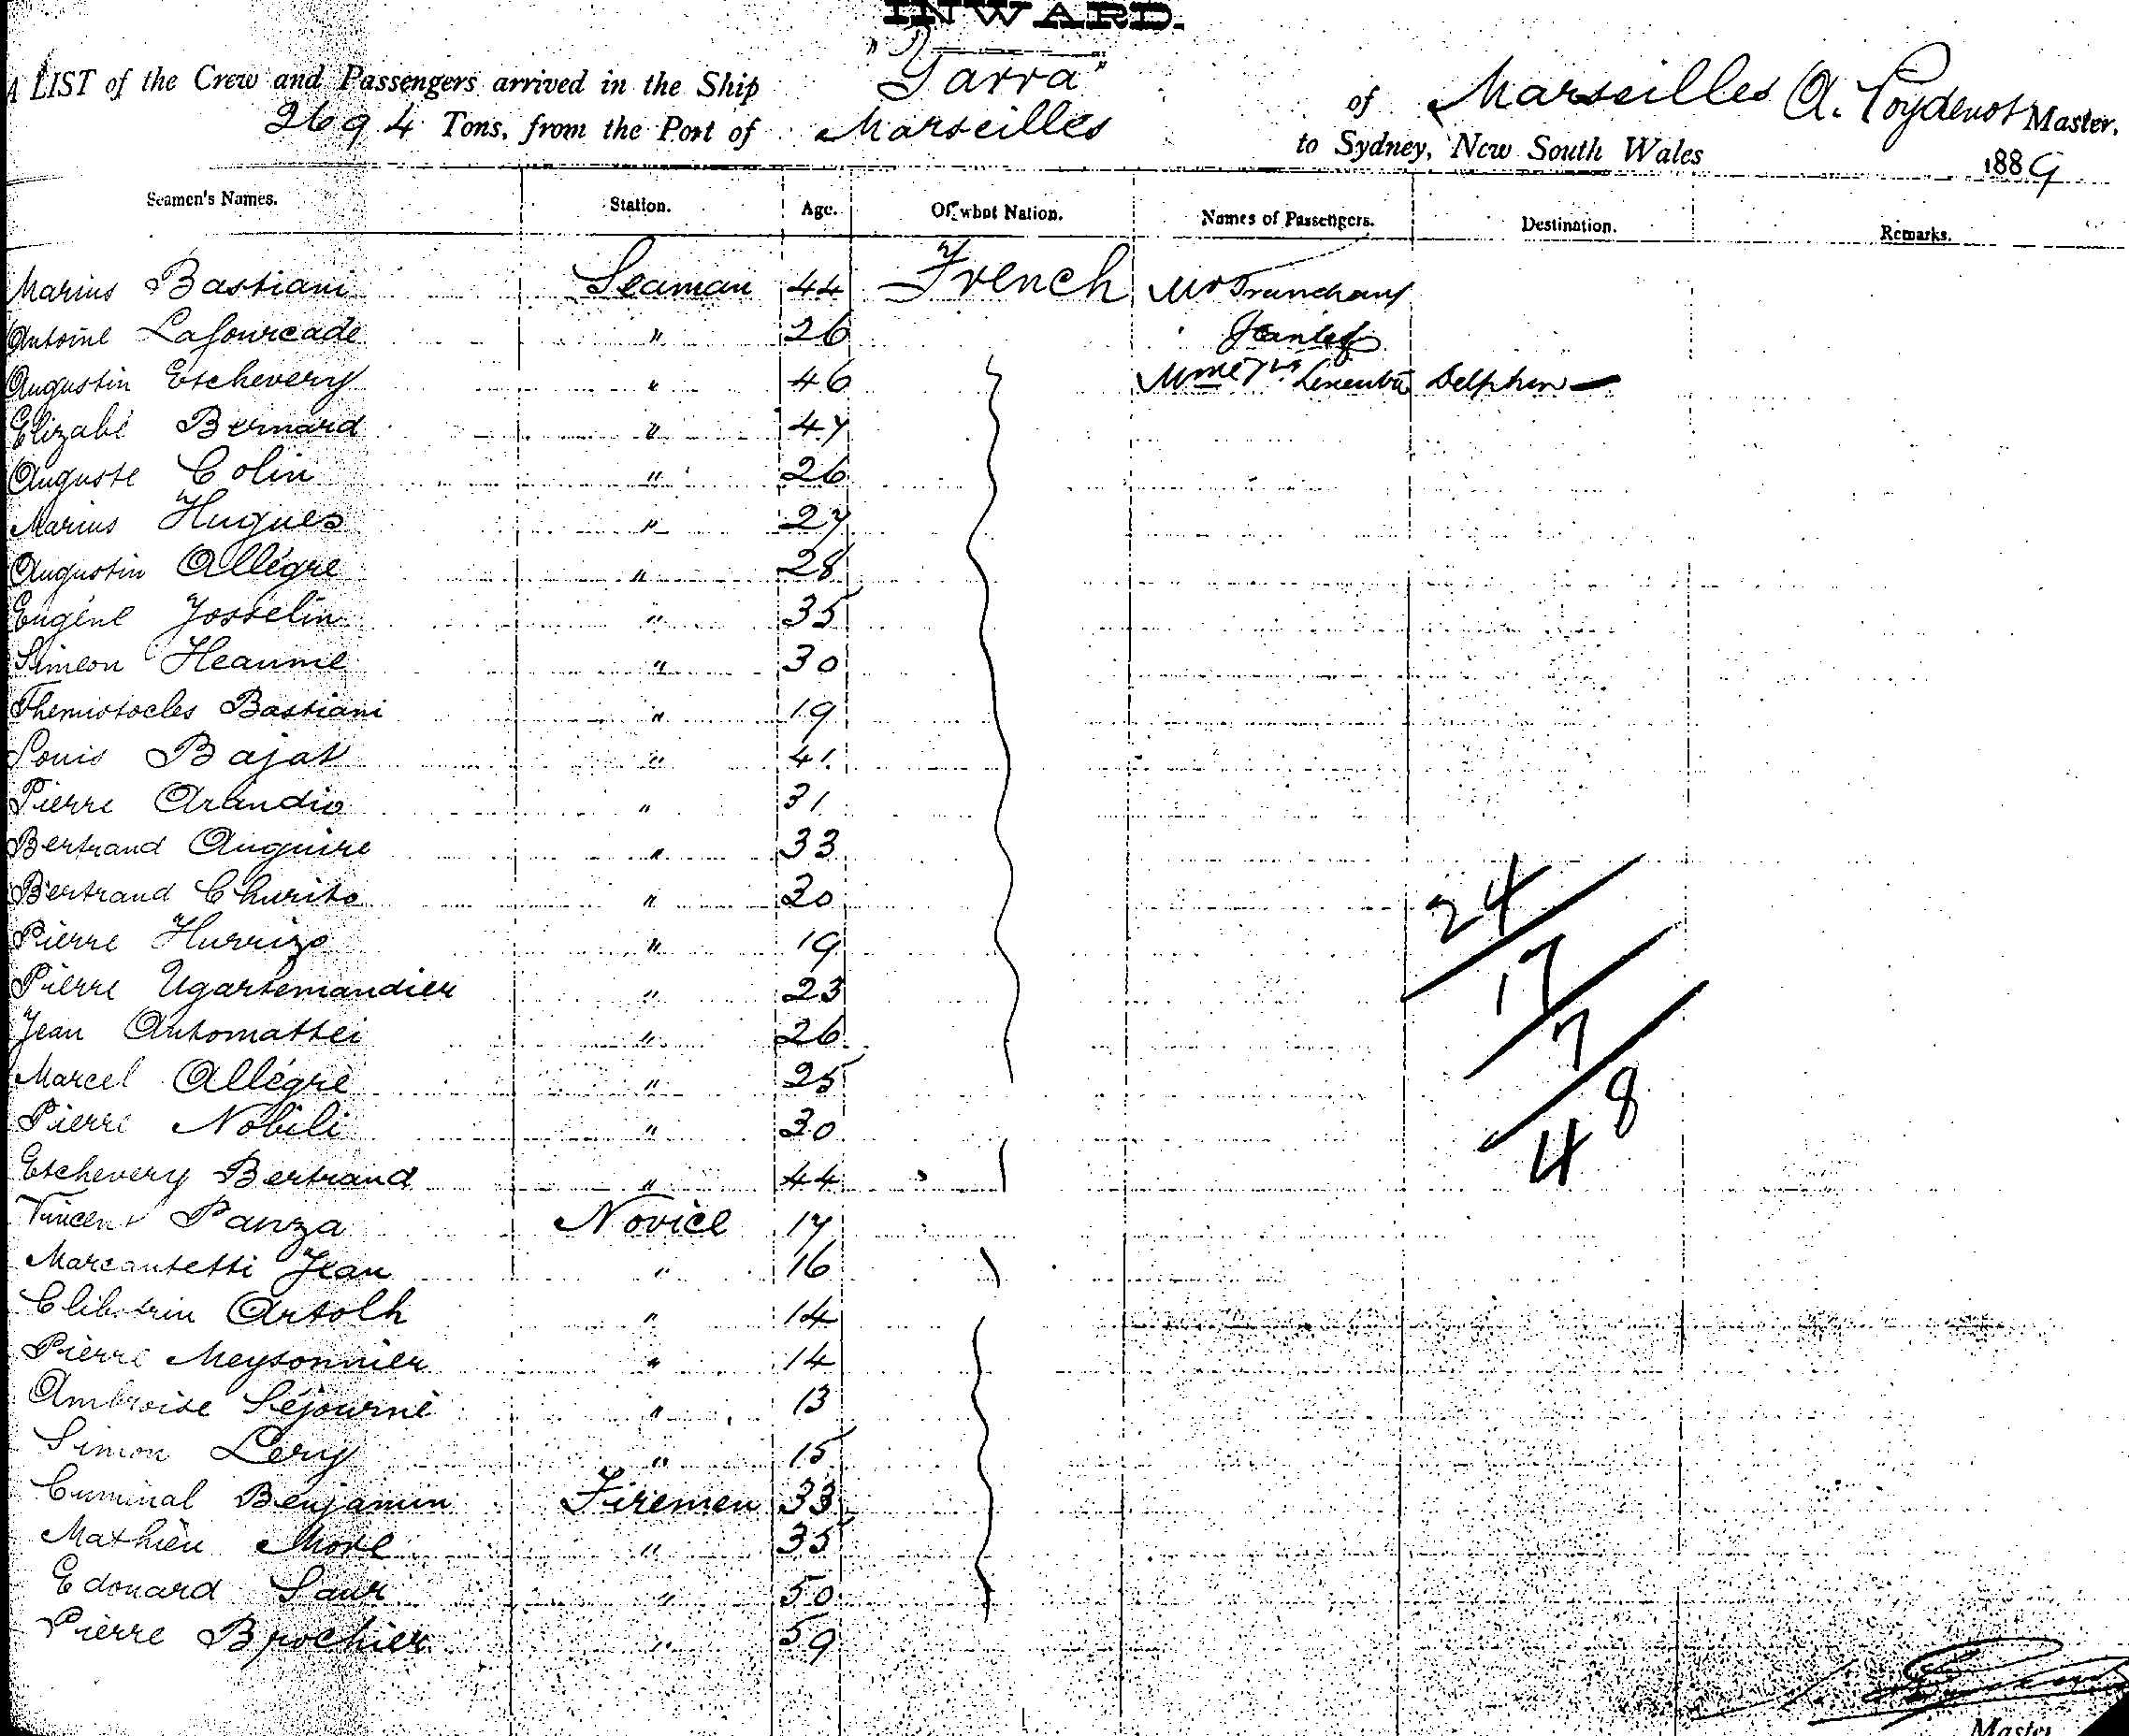 INWARD.
A LIST of the Crew and Passengers arrived in the Ship "Yarra" of Marseilles A. Poydenot Master,
2694 Tons, from the Port of Marseilles to Sydney, New South Wales 1889
Seamen's Names. Station. Age. Of what Nation. Names of Passengers. Destination. Remarks.
Marius Bastiani Seaman 44 French Mr Trunchant
Antoine Lafourcade " 26
Augustin Etchevery " 46 Mme Delphin
Elizabé Bernard " 47
Auguste Colin " 26
Marius Hugues " 27
Augustin Allégre " 28
Eugéne Josselin " 35
Simeon Heaume " 30
Themistocles Bastiani " 19
Louis Bajat " 41
Pierre Arandio " 31
Bertrand Anguire " 33
Bertrand Churito " 30
Pierre Hurrizo " 19
Pierre Ugartemandier " 23
Jean Antomattei " 26
Marcel Allégre " 25
Pierre Nobili " 30
Etchevery Bertrand " 44
Vincent Panza Novice 17
Marcantetti Jean " 16
Artolh " 14
Pierre Meysonnier " 14
Ambroise Séjourné " 13
Simon Lery " 15
Cuminal Benjamin Firemen 33
Mathieu More " 35
Edouard Saur " 50
Pierre Brochier " 59
24
17
7
48
Master